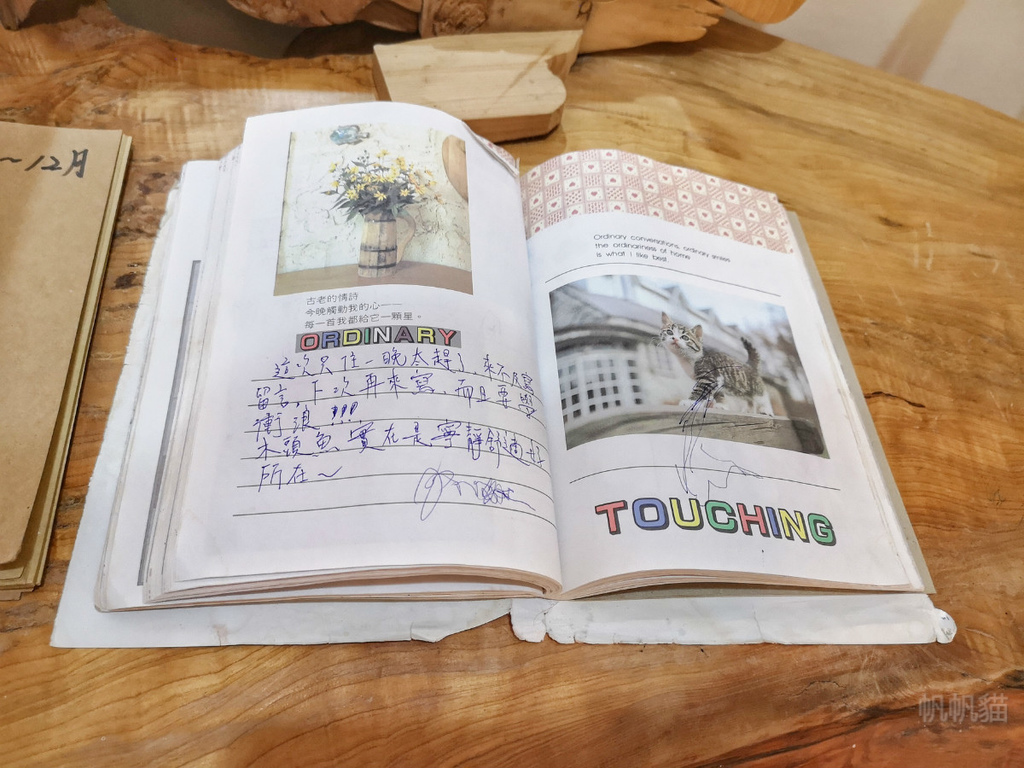 ~12月
古老的情詩
今晚觸動我的心——
每一首我都給它一顆星。
ORDINARY
這次只住一晚太趕了,來不及寫
留言,下次再來寫,而且要學
衝浪!!!
木頭魚實在是寧靜舒適好
所在~
Ordinary conversations, ordinary smiles
the ordinariness of home
is what I like best.
TOUCHING
帆帆貓